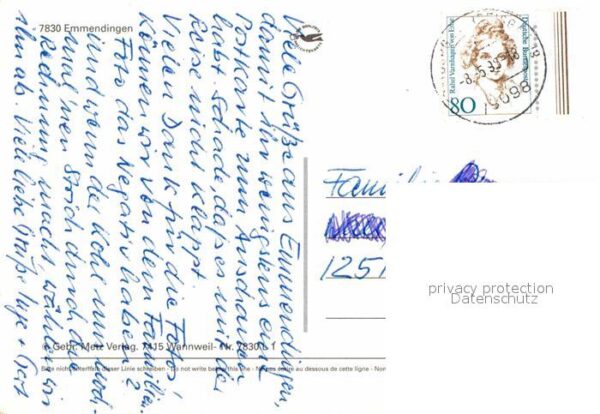 7830 Emmendingen
Viele Grüße aus Emmendingen,
damit Ihr wenigstens eine
Postkarte zum Anschauen
habt. Schade, daß es mit der
Reise nicht klappt.
Vielen Dank für die Fotos,
können wir von dem Familien-
Foto das Negativ haben?
Und wenn de Kohl uns
'nen Strich durch die
Rechnung macht wählen wir
ihn ab. Viele liebe Grüße Inge + Gert
© Gebr. Metz Verlag. 7415 Wannweil - Nr. 7830 L 1
Bitte nicht unterhalb dieser Linie schreiben · Do not write below this line · Ne pas écrire au dessous de cette ligne ·
Deutsche Bundespost
Rahel Varnhagen von Ense
80
Familie
1251
privacy protection
Datenschutz